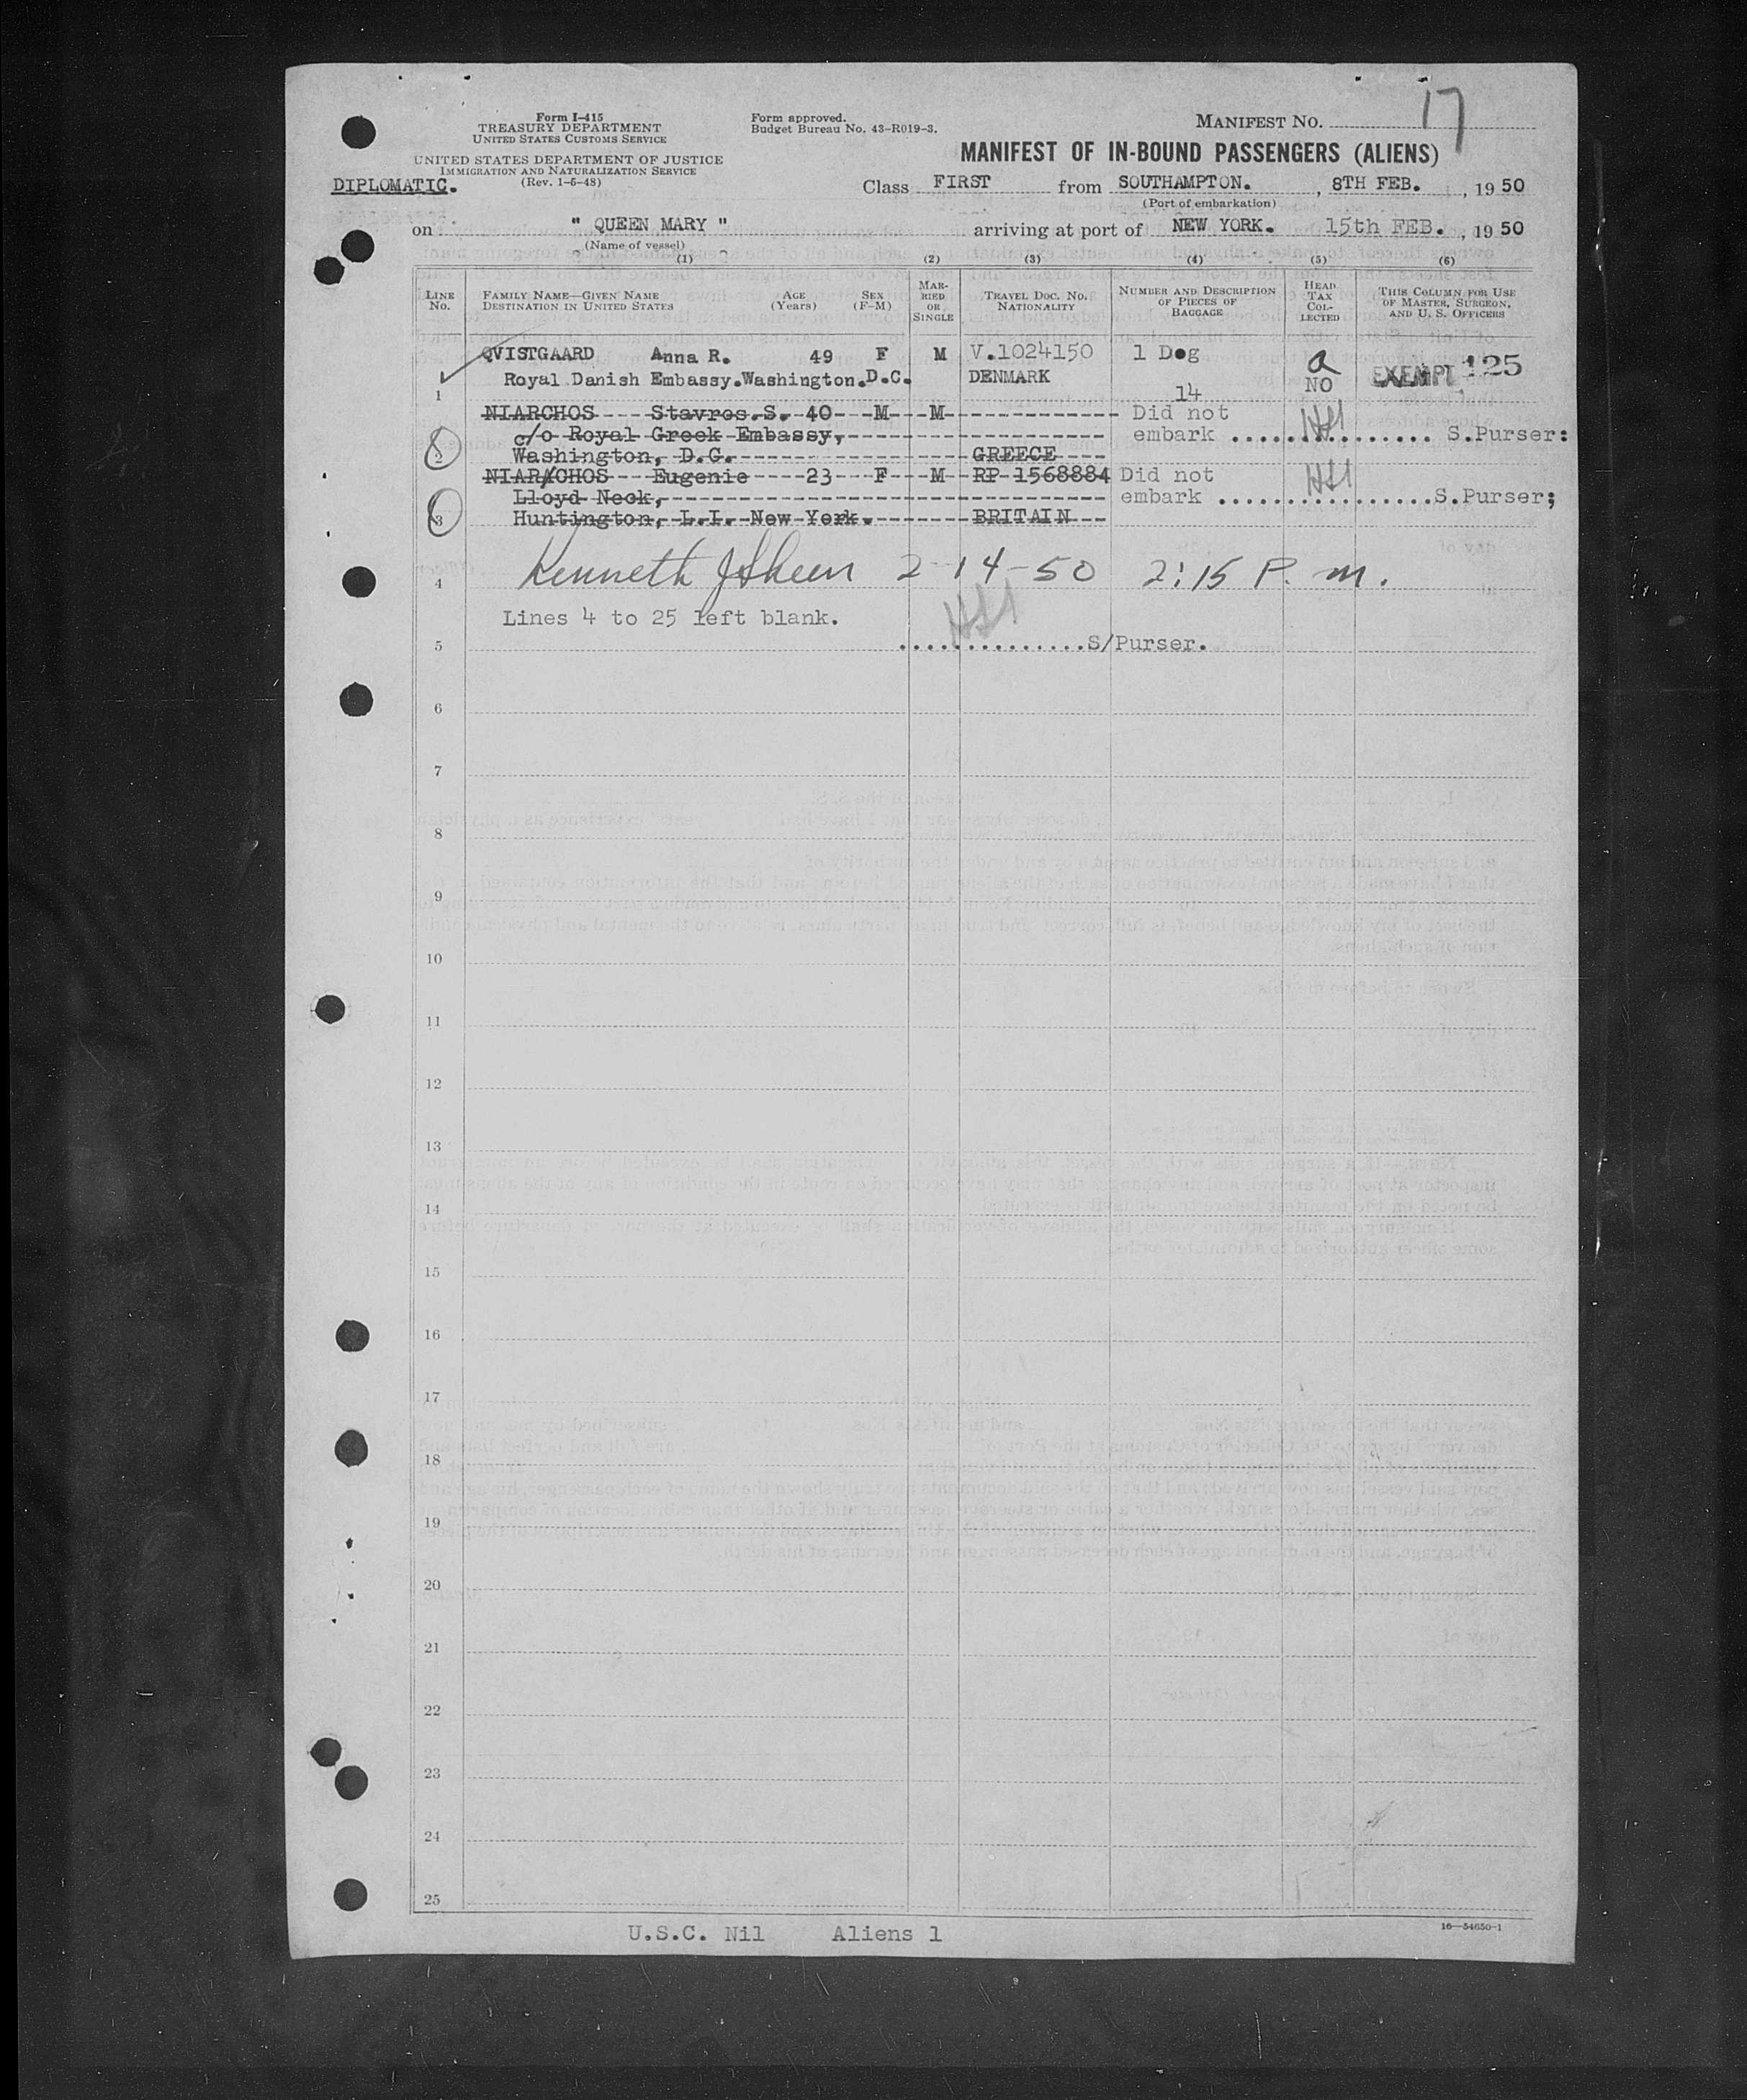 17
Form I-415
TREASURY DEPARTMENT
UNITED STATES CUSTOMS SERVICE
Form approved.
Budget Bureau No. 43-R019-3.
MANIFEST NO.
UNITED STATES DEPARTMENT OF JUSTICE
IMMIGRATION AND NATURALIZATION SERVICE
(Rev. 1-6-48)
MANIFEST OF IN-BOUND PASSENGERS (ALIENS)
DIPLOMATIC.
Class FIRST from SOUTHAMPTON. , 8TH FEB. , 19 50
(Port of embarkation)
on " QUEEN MARY " arriving at port of NEW YORK. 15th FEB. , 19 50
(Name of vessel)
(1) (2) (3) (4) (5) (6)
LINE NO. FAMILY NAME—GIVEN NAME DESTINATION IN UNITED STATES AGE (Years) SEX (F-M) MARRIED OR SINGLE TRAVEL DOC. NO. NATIONALITY NUMBER AND DESCRIPTION OF PIECES OF BAGGAGE HEAD TAX COLLECTED THIS COLUMN FOR USE OF MASTER, SURGEON, AND U. S. OFFICERS
QVISTGAARD Anna R. 49 F M V.1024150 1 Dog a
1 Royal Danish Embassy.Washington.D.C. DENMARK 14 NO EXEMPT 125
NIARCHOS Stavros.S. 40 M M Did not
c/o Royal Greek Embassy, embark .............. S.Purser:
2 Washington, D.C. GREECE
NIARCHOS Eugenie 23 F M RP 1568884 Did not
Lloyd Neck, embark ...............S.Purser;
3 Huntington, L.I. New York. BRITAIN
4 Kenneth 2-14-50 2:15 P. m.
Lines 4 to 25 left blank.
5 ..............S/Purser.
6
7
8
9
10
11
12
13
14
15
16
17
18
19
20
21
22
23
24
25
U.S.C. Nil Aliens 1
16—54650-1